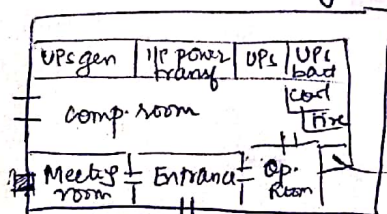 UPS gen I/P power transf UPS UPS batt
Cont
Fire
Comp. room
Meeting room Entrance Op. Room